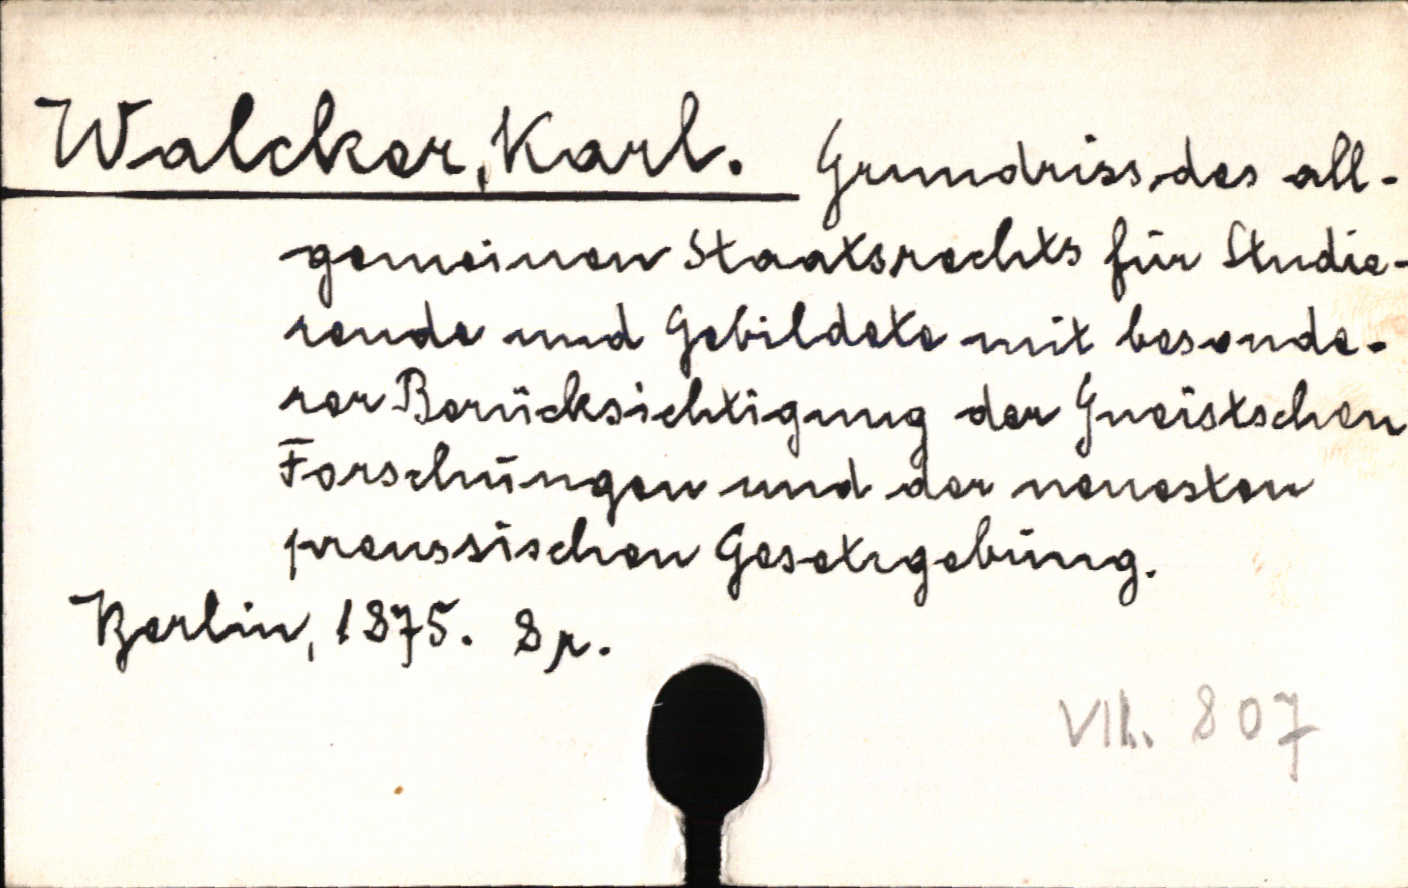 Walcker, Karl. Grundriss des all-
gemeinen Staatsrechts für Studie-
rende und Gebildete mit besonde-
rer Berücksichtigung der Gneistschen
Forschungen und der neuesten
preussischen Gesetzgebung.
Berlin, 1875. 8 r.
VIb. 807